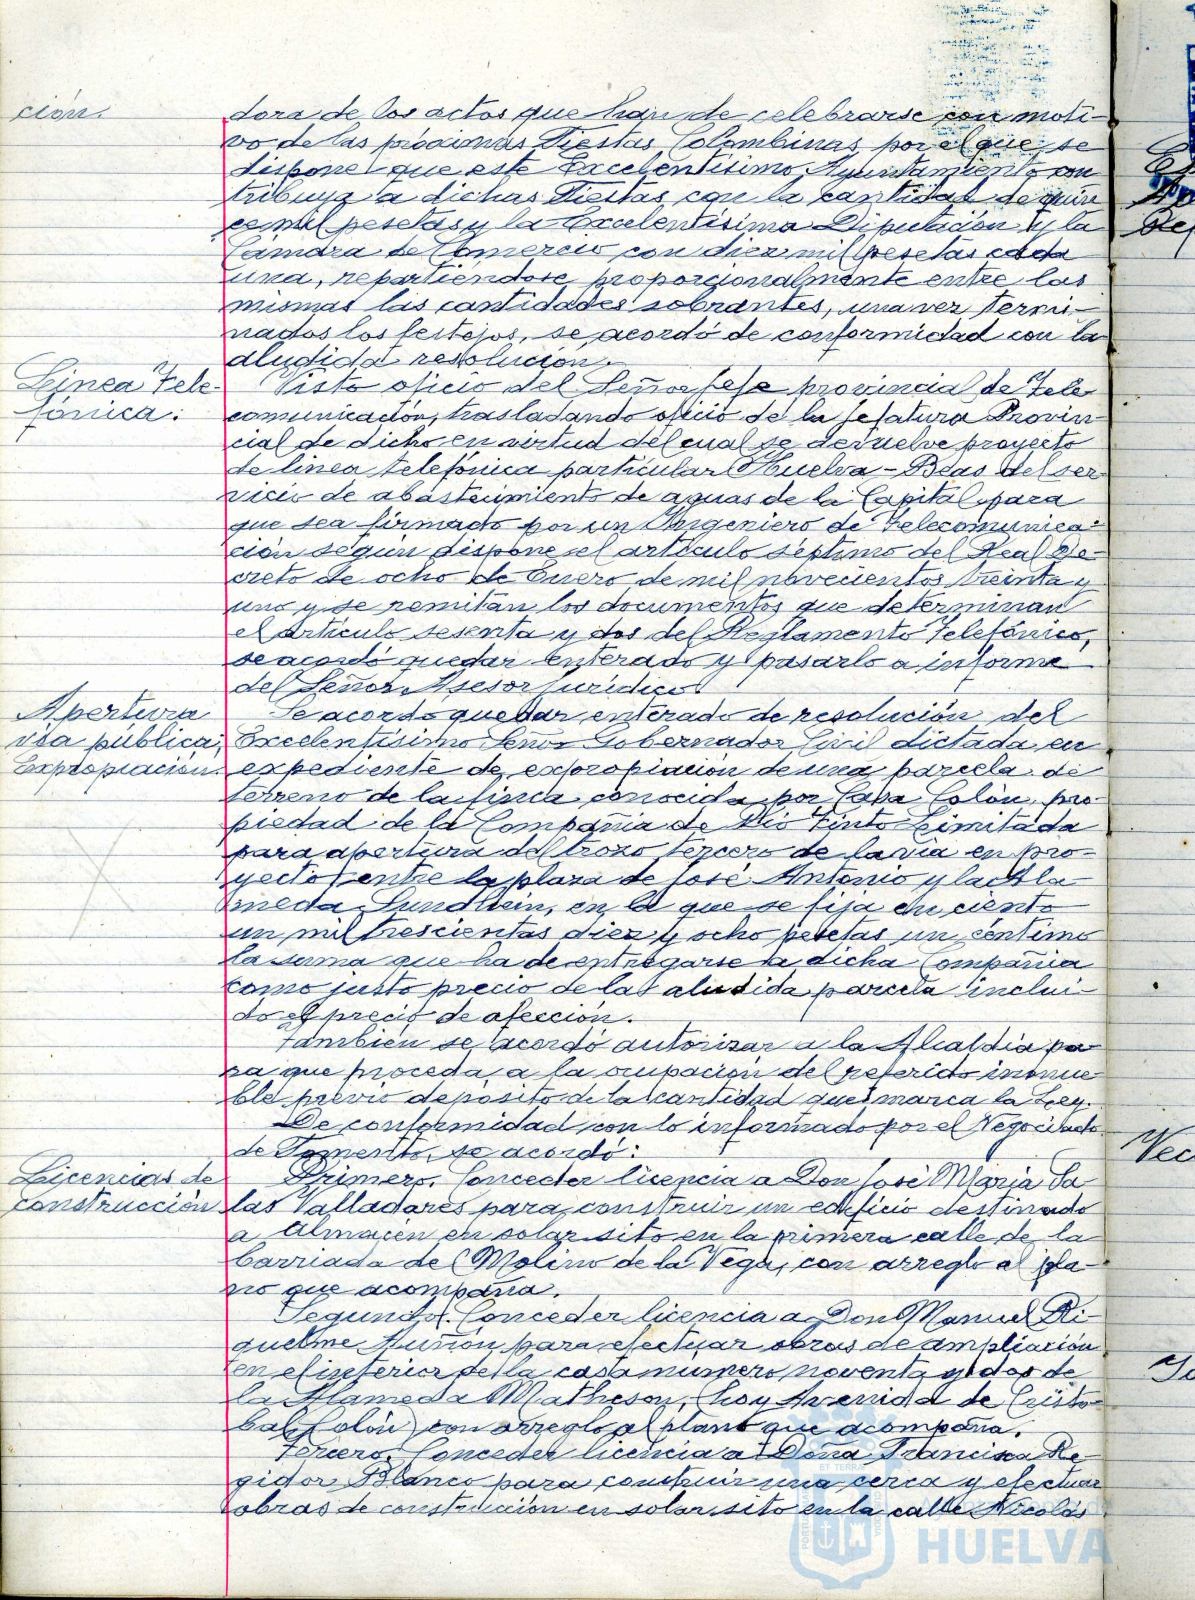 ción.
dora de los actos que han de celebrarse con moti-
vo de las próximas Fiestas Colombinas por el que se
dispone que este Excelentísimo Ayuntamiento con
tribuya a dichas Fiestas con la cantidad de quin
ce mil pesetas y la Excelentísima Diputación y la
Cámara de Comercio con diez mil pesetas cada
una, repartiéndose proporcionalmente entre las
mismas las cantidades sobrantes, una vez termi-
nados los festejos, se acordó de conformidad con la
aludida resolución.
Linea Tele-
fónica.
Visto oficio del Señor Jefe provincial de Tele
comunicación, trasladando oficio de la Jefatura Provin-
cial de dicho, en virtud del cual se devuelve proyecto
de linea telefónica particular Huelva - Beas del ser-
vicio de abastecimiento de aguas de la Capital para
que sea firmado por un Ingeniero de Telecomunica-
ción según dispone el artículo séptimo del Real De-
creto de ocho de Enero de mil novecientos treinta y
uno y se remitan los documentos que determinan
el artículo sesenta y dos del Reglamento Telefónico,
se acordó quedar enterado y pasarlo a informe
del Señor Asesor Jurídico.
Apertura
vía pública;
Expropiación.
Se acordó quedar enterado de resolución del
Excelentísimo Señor Gobernador Civil dictada en
expediente de expropiación de una parcela de
terreno de la finca conocida por Casa Colón, pro-
piedad de la Compañía de Rio Tinto Limitada
para apertura del trozo tercero de la vía en pro-
yecto entre la plaza de José Antonio y la Ala-
meda Sundheim, en la que se fija en ciento
un mil trescientas diez y ocho pesetas un céntimo
la suma que ha de entregarse a dicha Compañía
como justo precio de la aludida parcela inclui-
do el precio de afección.
También se acordó autorizar a la Alcaldía pa-
ra que proceda a la ocupación del referido inmue-
ble previo depósito de la cantidad que marca la Ley.
De conformidad con lo informado por el Negociado
de Fomento, se acordó:
Licencias de
construcción
Primero. Conceder licencia a Don José María Sa
las Valladares para construir un edificio destinado
a Almacén en solar sito en la primera calle de la
barriada de Molino de la Vega, con arreglo al pla-
no que acompaña.
Segundo. Conceder licencia a Don Manuel Ri-
quelme Muñón para efectuar obras de ampliación
en el interior de la casa número noventa y dos de
la Alameda Matheson, (hoy Avenida de Cristo-
bal Colón) con arreglo al plano que acompaña.
Tercero. Conceder licencia a Doña Francisca Re-
gidor Blanco para construir una cerca y efectuar
obras de construcción en solar sito en la calle Nicolás
HUELVA